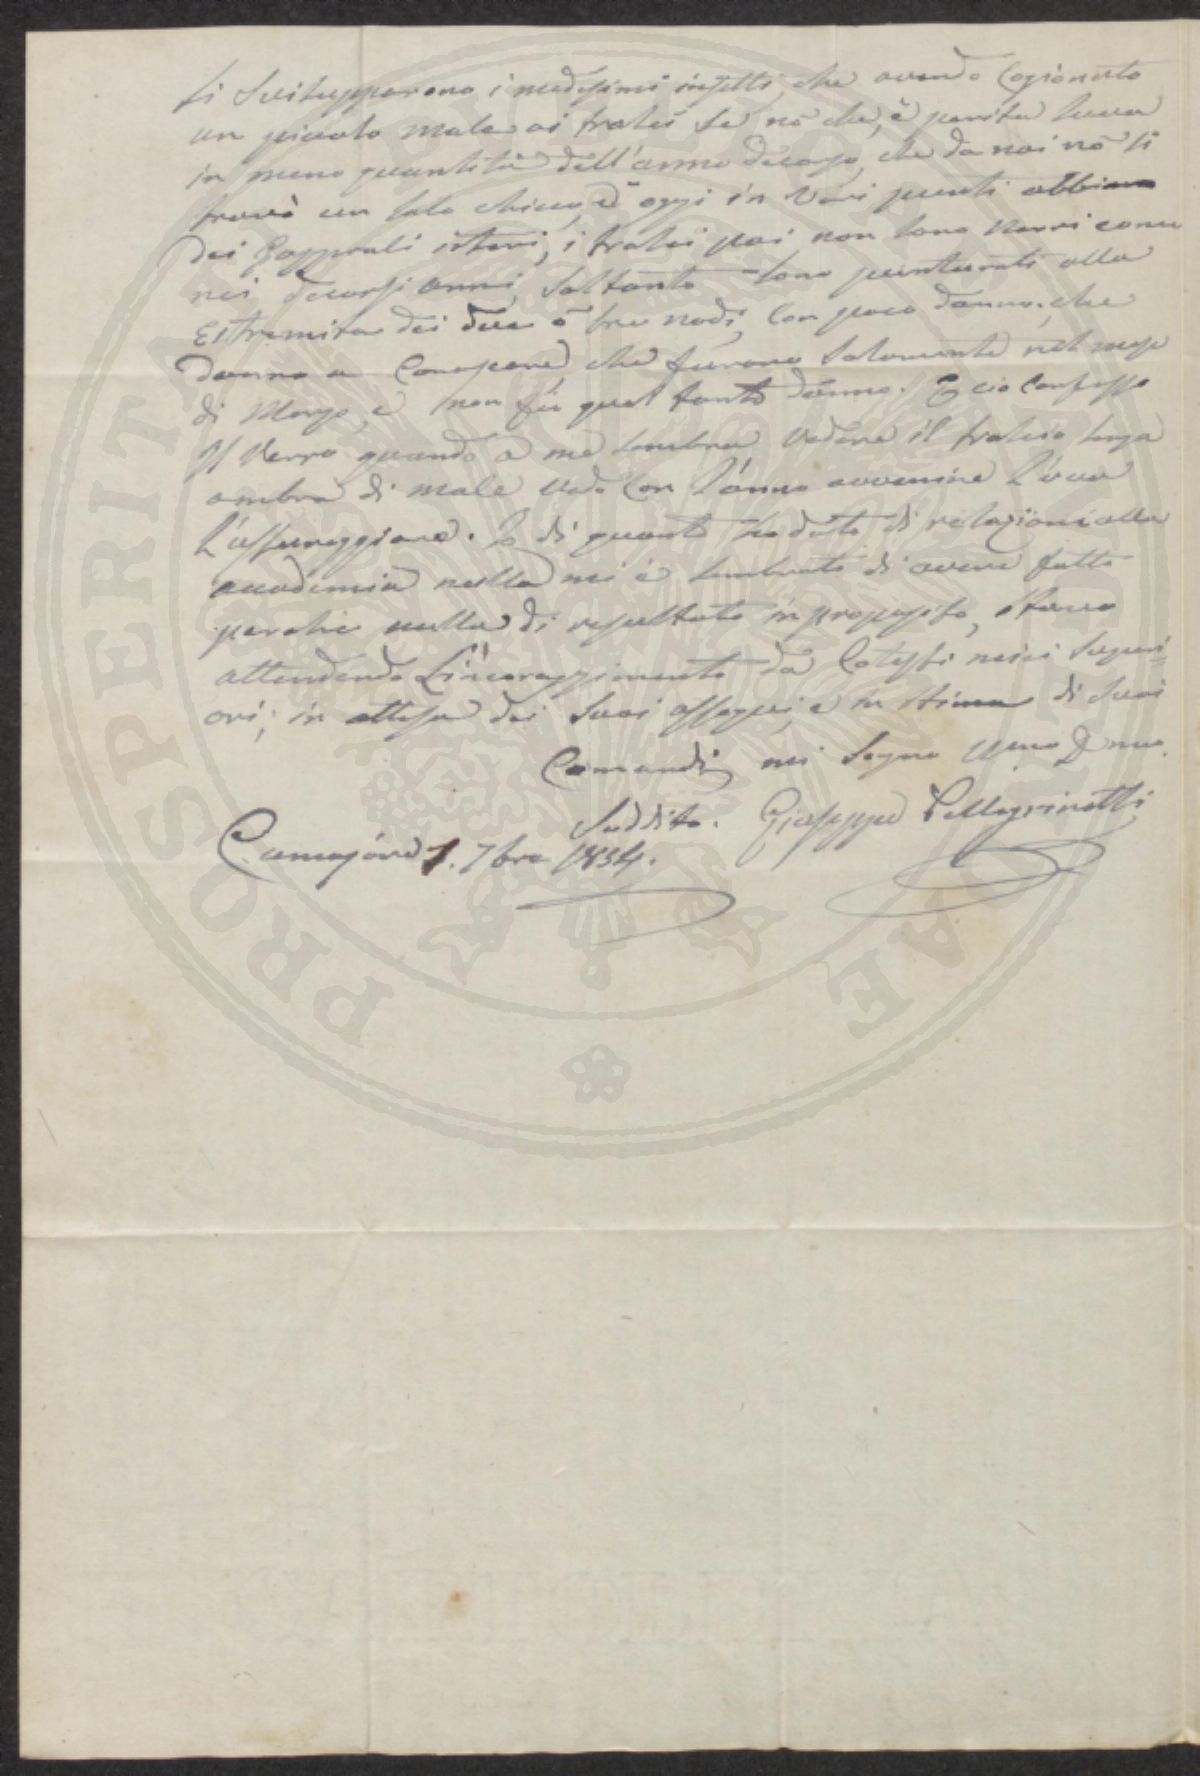 si svilupparono i medesimi insetti, che avendo Cagionato
un piccolo male ai tralci se nõ che, è perita luva
in meno quantità dell'anno decorso, che da noi nõ si
trovò un solo chicco, ed oggi in vari punti abbiamo
dei Grappoli interi, i tralci poi non sono Nerri come
nei decorsi anni, soltanto sono punturati alla
Estremita dei due ò tre nodi, Con poco danno; che
danno a Conoscere, che furono solamente nel mese
di Marzo, e non fù quel tanto danno. E ciò Confesso
Il Verro quando a me sembra vedere il tralcio senza
ombra di male vedo Con l'anno avvenire l'uva
L'assureggiare. Io di quanto ho dato di relazioni alla
accademia nulla mi è sembrato di avere fatto
perche nulla di resultato in proposito, stavo
attendendo L'incoraggimento da Cotesti miei Superi-
ori; in attesa dei suoi ossequi, e in stima di suoi
Comandi, mi segno
Suddito. Giuseppe Pellegrinetti
Camajore 1. 7bre 1854.
PROSPERITATI PUBLICAE